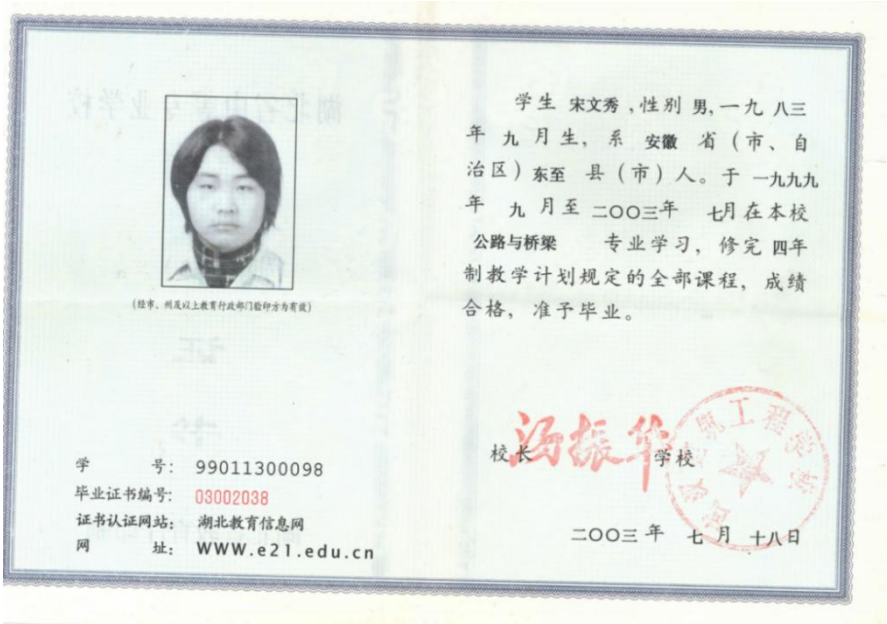 (经市、州及以上教育行政部门验印方为有效)
学 号: 99011300098
毕业证书编号: 03002038
证书认证网站: 湖北教育信息网
网 址: WWW.e21.edu.cn
学生 宋文秀,性别 男,一九 八三
年 九 月生, 系 安徽 省(市、自
治区)东至 县(市)人。于 一九九九
年 九 月至 二〇〇三年 七月在本校
公路与桥梁 专业学习, 修完 四年
制教学计划规定的全部课程, 成绩
合格, 准予毕业。
校长 汤振华 学校
工程学校
二〇〇三 年 七 月 十八日